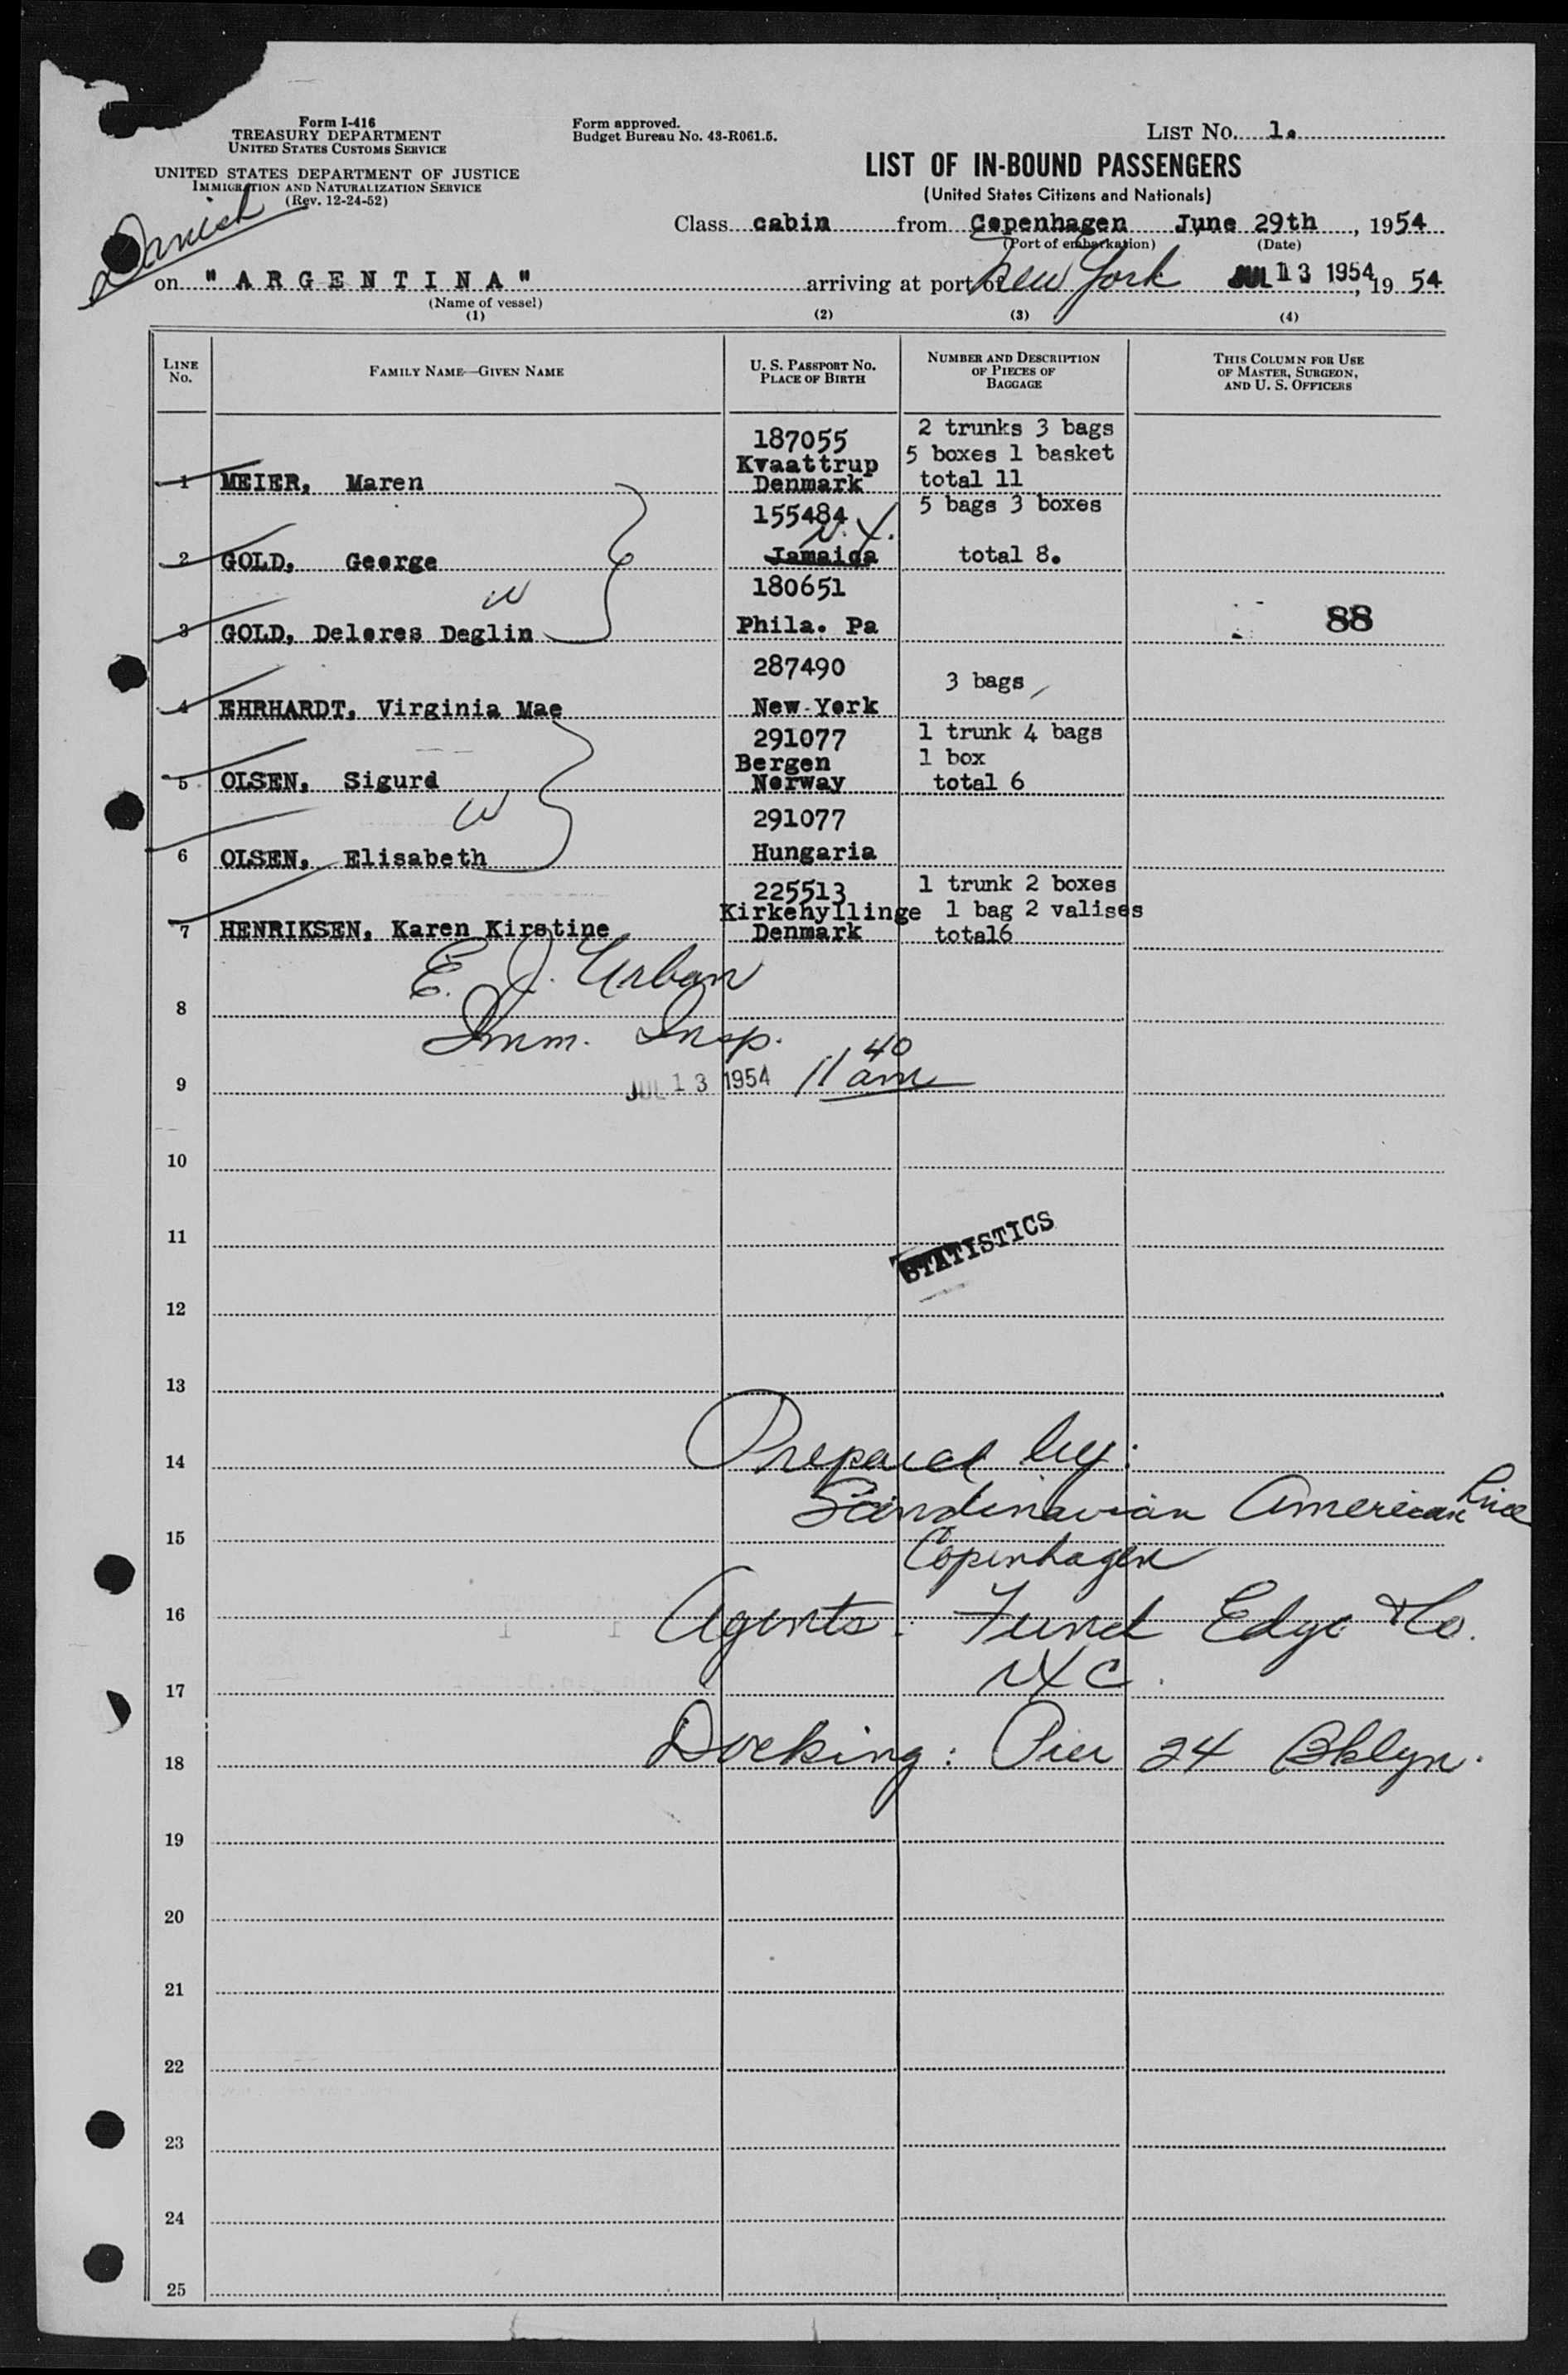 Form I-416
TREASURY DEPARTMENT
UNITED STATES CUSTOMS SERVICE
UNITED STATES DEPARTMENT OF JUSTICE
IMMIGRATION AND NATURALIZATION SERVICE
(Rev. 12-24-52)
Danish
Form approved.
Budget Bureau No. 43-R061.5.
LIST NO. 1.
LIST OF IN-BOUND PASSENGERS
(United States Citizens and Nationals)
Class cabin from Copenhagen June 29th, 1954
(Port of embarkation) (Date)
on "ARGENTINA" arriving at port of New York JUL 13 1954, 19 54
(Name of vessel)
(1) (2) (3) (4)
LINE NO. FAMILY NAME—GIVEN NAME U. S. PASSPORT NO. PLACE OF BIRTH NUMBER AND DESCRIPTION OF PIECES OF BAGGAGE THIS COLUMN FOR USE OF MASTER, SURGEON, AND U. S. OFFICERS
187055 2 trunks 3 bags
Kvaattrup 5 boxes 1 basket
1 MEIER, Maren Denmark total 11
155484 5 bags 3 boxes
N.Y.
2 GOLD, George Jamaica total 8.
W 180651
3 GOLD, Delores Deglin Phila. Pa 88
287490 3 bags
4 EHRHARDT, Virginia Mae New York
291077 1 trunk 4 bags
Bergen 1 box
5 OLSEN, Sigurd Norway total 6
W 291077
6 OLSEN, Elisabeth Hungaria
225513 1 trunk 2 boxes
Kirkehyllinge 1 bag 2 valises
7 HENRIKSEN, Karen Kirstine Denmark total6
E. J. Urban
8
Imm. Insp.
9 JUL 13 1954 11 40 am
10
11
STATISTICS
12
13
14 Prepared by:
Scandinavian American Line
15
Copenhagen
16 Agents: Funch Edye & Co.
17 NYC.
18 Docking: Pier 24 Bklyn.
19
20
21
22
23
24
25